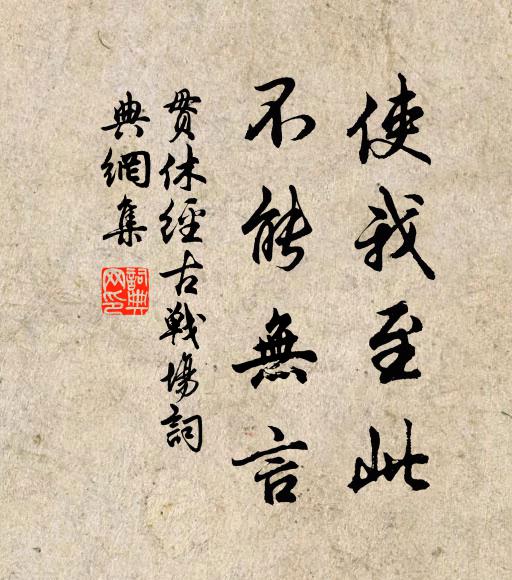 使我至此
不能無言
貫休經古戰場詞
典網集
詞典
网印